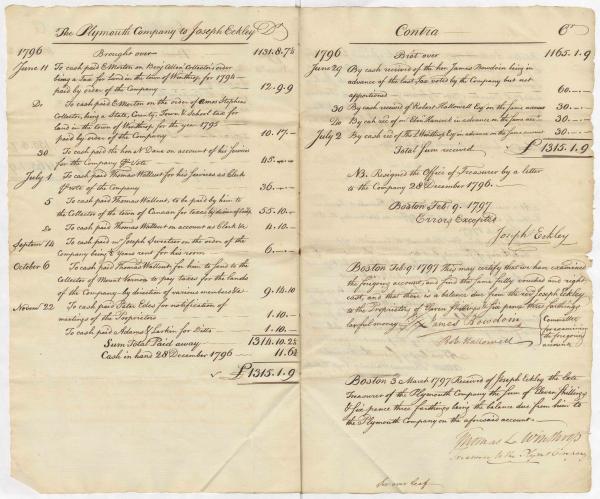 The Plymouth Company to Joseph Eckley Dr
1796 Brought over 1131.8.7¾
June 11 To cash paid E Morton on Benj Allen Collector's order
being a Tax for land in the town of Winthrop for 1794
paid by order of the Company 12.9.9
Do To cash paid E Morton on the order of Amos Stephens
Collector, being a State, County, Town & School tax for
land in the town of Winthrop for the year 1795
paid by order of the Company 10.17.-
30 To cash paid the hon N Dane on account of his services
for the Company & Vote 45.-.-
July 1 To cash paid Thomas Wallcut for his services as Clerk
& vote of the Company 36.-.-
5 To cash paid Thomas Wallcut, to be paid by him to
the Collector of the town of Canaan for taxes 55.10.-
Do To cash paid Thomas Wallcut on account as Clerk &c 4.10.-
Septem 14 To cash paid Mr Joseph Sweetser on the order of the
Company being years rent for his room 6.-.-
October 6 To cash paid Thomas Wallcut for him to send to the
Collector of Mount Vernon to pay taxes for the lands
of the Company by direction of various members &c 9.14.10
Novem 22 To cash paid Peter Edes for notification of
meetings of the Proprietors 1.10.-
To cash paid Adams & Larkin for Ditto 1.10.-
Sum Total Paid away 1314.10.2¾
Cash in hand 28 December 1796 11.6¾
£1315.1.9
Contra Cr
1796 Brot over 1165.1.9
June 29 By cash received of the hon James Bowdoin being in
advance of the last Tax voted by the Company but not
apportioned 60.-.-
30 By cash received of Robert Hallowell Esq in the same manner 30.-.-
Do By cash rec'd of Mr Eben Hancock in advance in the same manr 30.-.-
July 2 By cash rec'd of Winthrop Esq in advance in the same manner 30.-.-
Total Sum received £1315.1.9
NB. Resigned the Office of Treasurer by a letter
to the Company 28 December 1796.
Boston Feb 9. 1797
Errors Excepted
Joseph Eckley
Boston Feb 9. 1797 This may certify that we have examined
the foregoing account, and find the same fully vouched and right
cast, and that there is a balance due from the rev Joseph Eckley
to the Proprietors of Eleven Shillings & six pence three farthings
lawful money
James Bowdoin
Rob Hallowell
Committee
for examining
the foregoing
account
Boston 3 March 1797 Received of Joseph Eckley the late
Treasurer of the Plymouth Company the Sum of Eleven Shillings
& Six pence three farthings being the balance due from him to
the Plymouth Company on the aforesaid account.
Thomas L Winthrop
Treasurer to the Plymo Company
over leaf